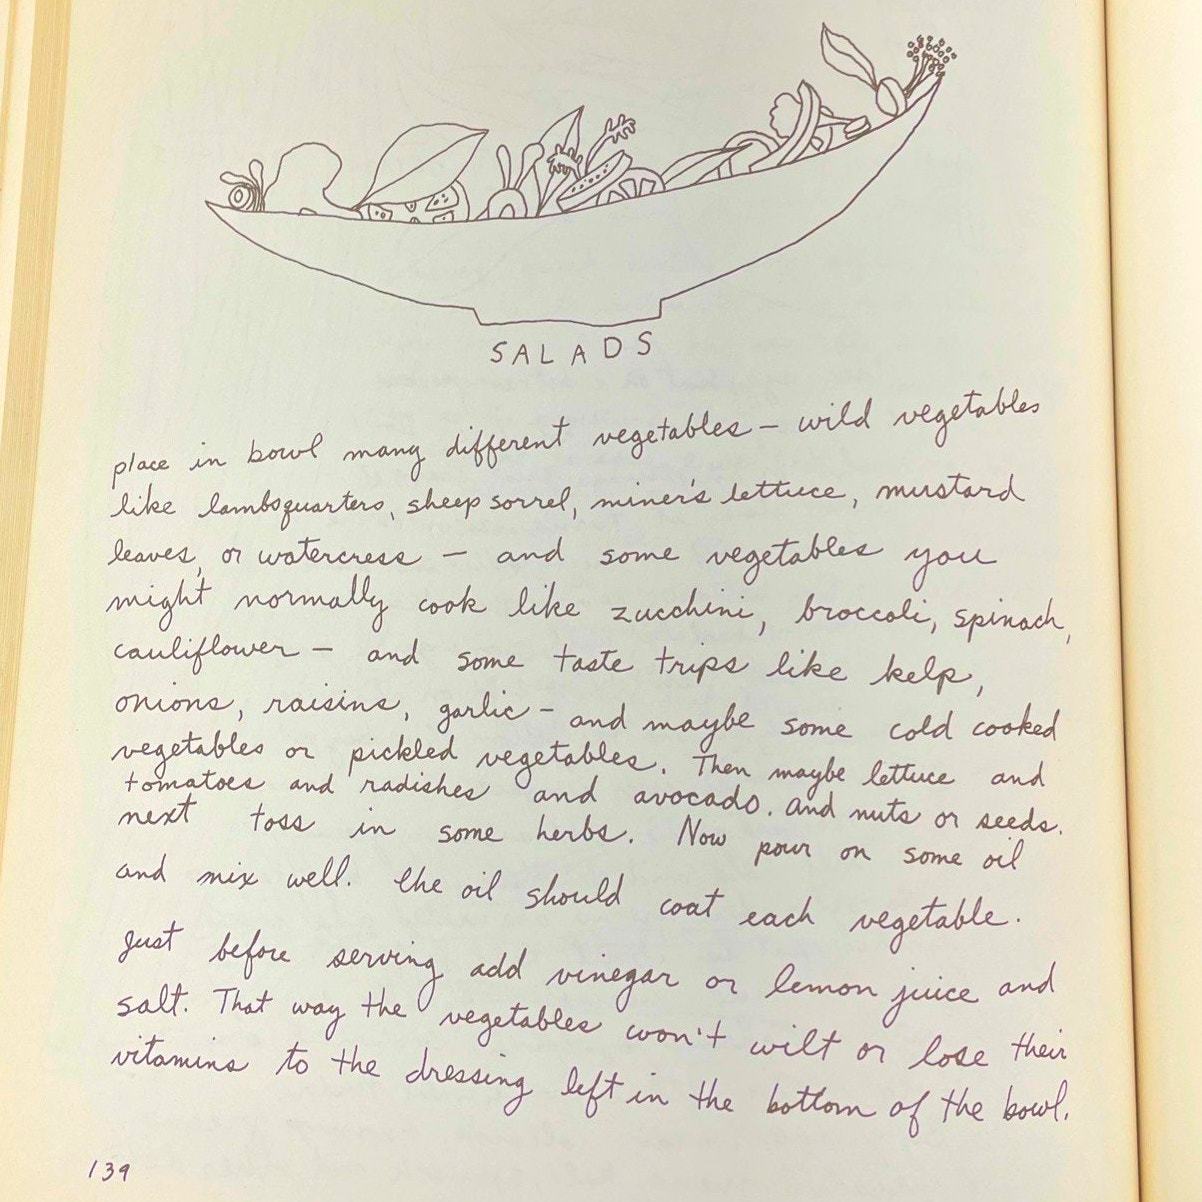 SALADS
place in bowl many different vegetables – wild vegetables
like lambsquarters, sheep sorrel, miner's lettuce, mustard
leaves, or watercress – and some vegetables you
might normally cook like zucchini, broccoli, spinach,
cauliflower – and some taste trips like kelp,
onions, raisins, garlic – and maybe some cold cooked
vegetables or pickled vegetables. Then maybe lettuce and
tomatoes and radishes and avocado. and nuts or seeds.
next toss in some herbs. Now pour on some oil
and mix well. the oil should coat each vegetable.
Just before serving add vinegar or lemon juice and
salt. That way the vegetables won't wilt or lose their
vitamins to the dressing left in the bottom of the bowl.
139